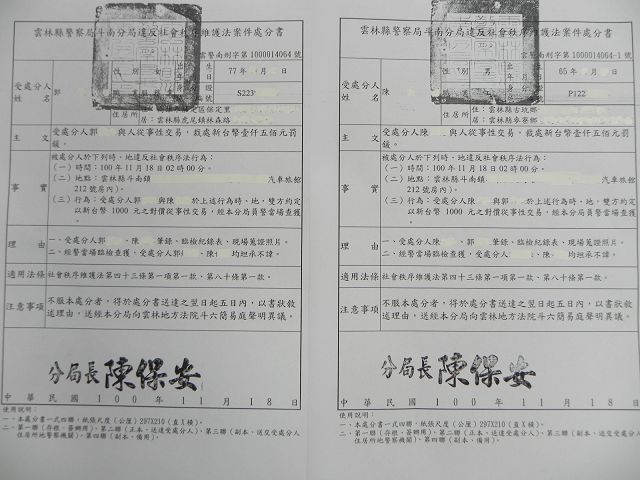 雲林縣警察局斗南分局違反社會秩序維護法案件處分書
雲警南刑字第1000014064號
受處分人
姓名
郭
性別
女
出生年月日
77
S223
住居所
住：雲林縣虎尾鎮林森路
主文
受處分人郭 與人從事性交易，裁處新台幣壹仟五佰元罰
鍰。
事實
被處分人於下列時、地違反社會秩序法行為：
（一）時間：100年11月18日02時00分。
（二）地點：雲林縣斗南鎮 汽車旅館
212號房內）。
（三）行為：受處分人郭 與陳 於上述行為時、地，雙方約定
以新台幣 1000 元之對價從事性交易，經本分局員警當場查獲
。
理由
一、受處分人郭 、陳 筆錄、臨檢紀錄表、現場蒐證照片。
二、經警當場臨檢查獲，受處分人郭 、陳 均坦承不諱。
適用法條
社會秩序維護法第四十三條第一項第一款、第八十條第一款。
注意事項
不服本處分者，得於處分書送達之翌日起五日內，以書狀敘
述理由，送經本分局向雲林地方法院斗六簡易庭聲明異議。
分局長 陳保安
中華民國 100 年 11 月 18 日
使用說明：
一、本處分書一式四聯，紙張尺度（公厘）297X210（直X橫）。
二、第一聯（存根，簽辦用）、第二聯（正本、送達受處分人）、第三聯（副本、送交受處分人
住居所地警察機關）、第四聯（副本、備用）。
雲林縣警察局斗南分局違反社會秩序維護法案件處分書
雲警南刑字第1000014064-1號
受處分人
姓名
陳
性別
男
出生年月日
65
P122
住：雲林縣古坑鄉
居：雲林縣麥寮鄉
主文
受處分人陳 與人從事性交易，裁處新台幣壹仟五佰元罰
鍰。
事實
被處分人於下列時、地違反社會秩序法行為：
（一）時間：100年11月18日02時00分。
（二）地點：雲林縣斗南鎮 汽車旅館
212號房內）。
（三）行為：受處分人陳 與郭 於上述行為時、地，雙方約定
以新台幣 1000 元之對價從事性交易，經本分局員警當場查獲
。
理由
一、受處分人陳 、郭 筆錄、臨檢紀錄表、現場蒐證照片。
二、經警當場臨檢查獲，受處分人郭 、陳 均坦承不諱。
適用法條
社會秩序維護法第四十三條第一項第一款、第八十條第一款。
注意事項
不服本處分者，得於處分書送達之翌日起五日內，以書狀敘
述理由，送經本分局向雲林地方法院斗六簡易庭聲明異議。
分局長 陳保安
中華民國 100 年 11 月 18 日
使用說明：
一、本處分書一式四聯，紙張尺度（公厘）297X210（直X橫）。
二、第一聯（存根、簽辦用）、第二聯（正本、送達受處分人）、第三聯（副本、送交受處分人
住居所地警察機關）、第四聯（副本、備用）。